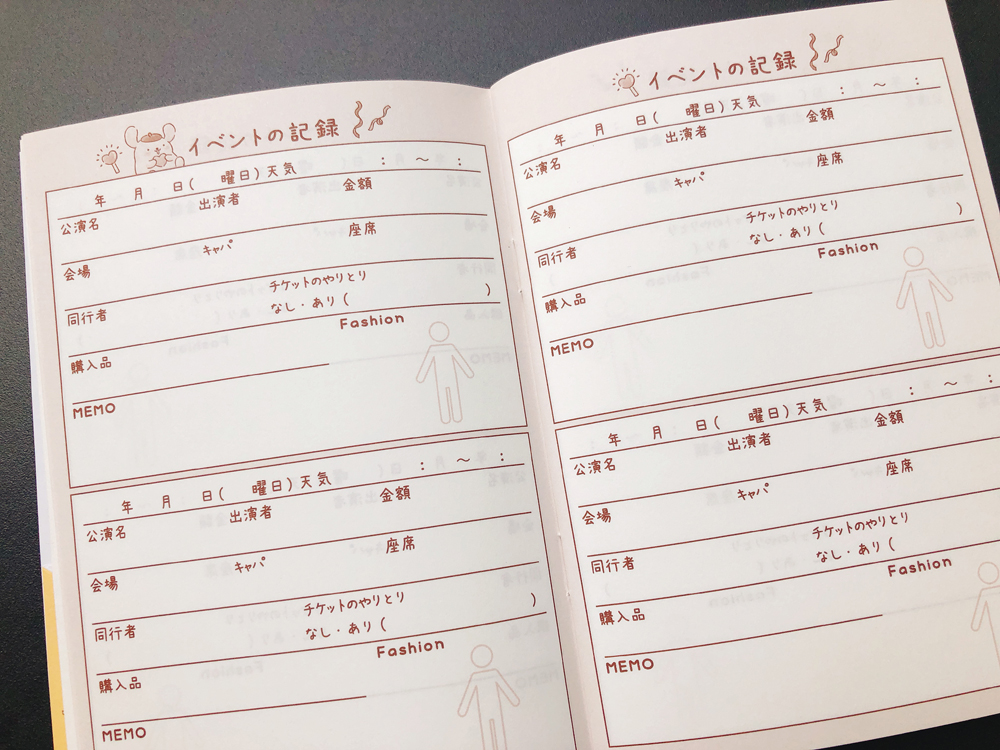 イベントの記録
年 月 日( 曜日)天気 : ～ :
公演名 出演者 金額
会場 キャパ 座席
同行者 チケットのやりとり
なし・あり( )
購入品 Fashion
MEMO
年 月 日( 曜日)天気 : ～ :
公演名 出演者 金額
会場 キャパ 座席
同行者 チケットのやりとり
なし・あり( )
購入品 Fashion
MEMO
イベントの記録
年 月 日( 曜日)天気 : ～ :
公演名 出演者 金額
会場 キャパ 座席
同行者 チケットのやりとり
なし・あり( )
購入品 Fashion
MEMO
年 月 日( 曜日)天気 : ～ :
公演名 出演者 金額
会場 キャパ 座席
同行者 チケットのやりとり
なし・あり(
購入品 Fashion
MEMO